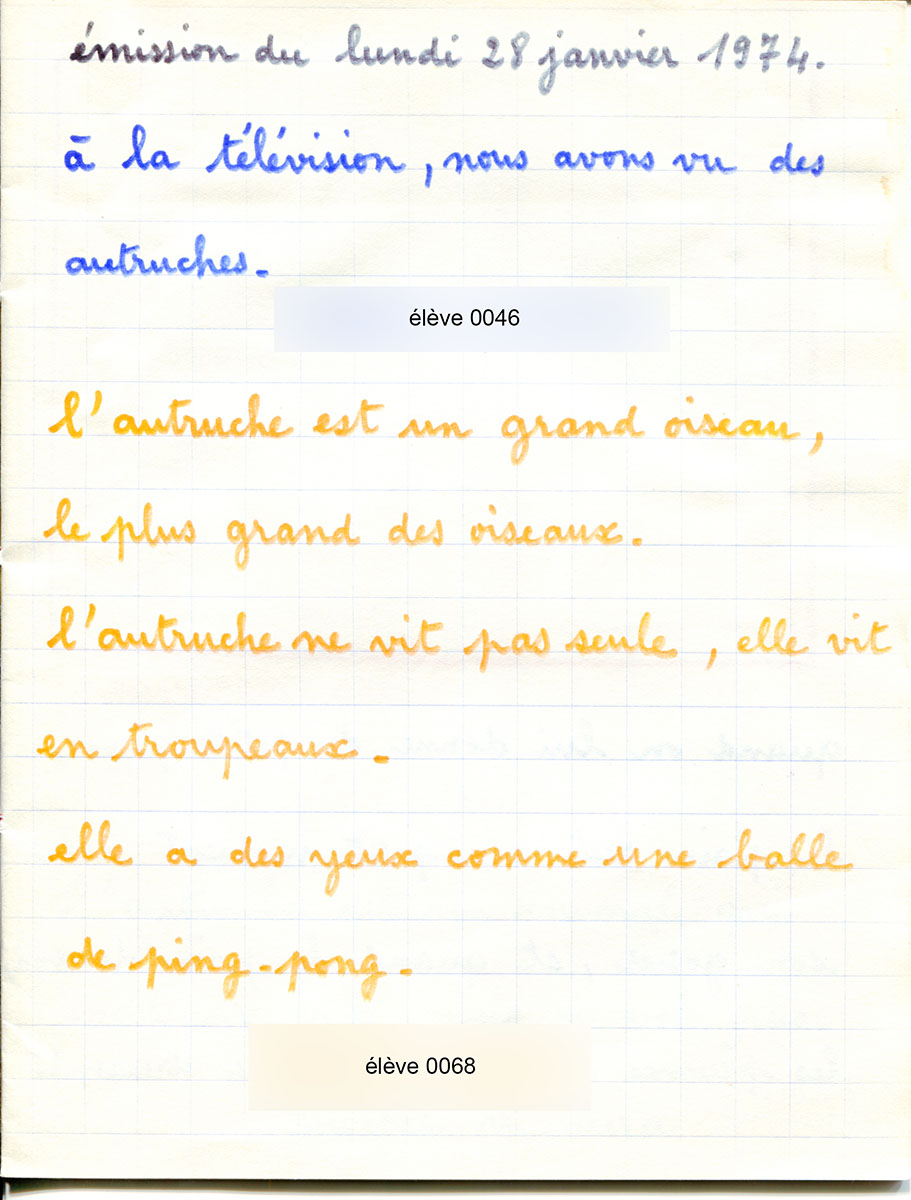 émission du lundi 28 janvier 1974.
à la télévision, nous avons vu des
autruches.
élève 0046
l'autruche est un grand oiseau,
le plus grand des oiseaux.
l'autruche ne vit pas seule, elle vit
en troupeaux.
elle a des yeux comme une balle
de ping-pong.
élève 0068